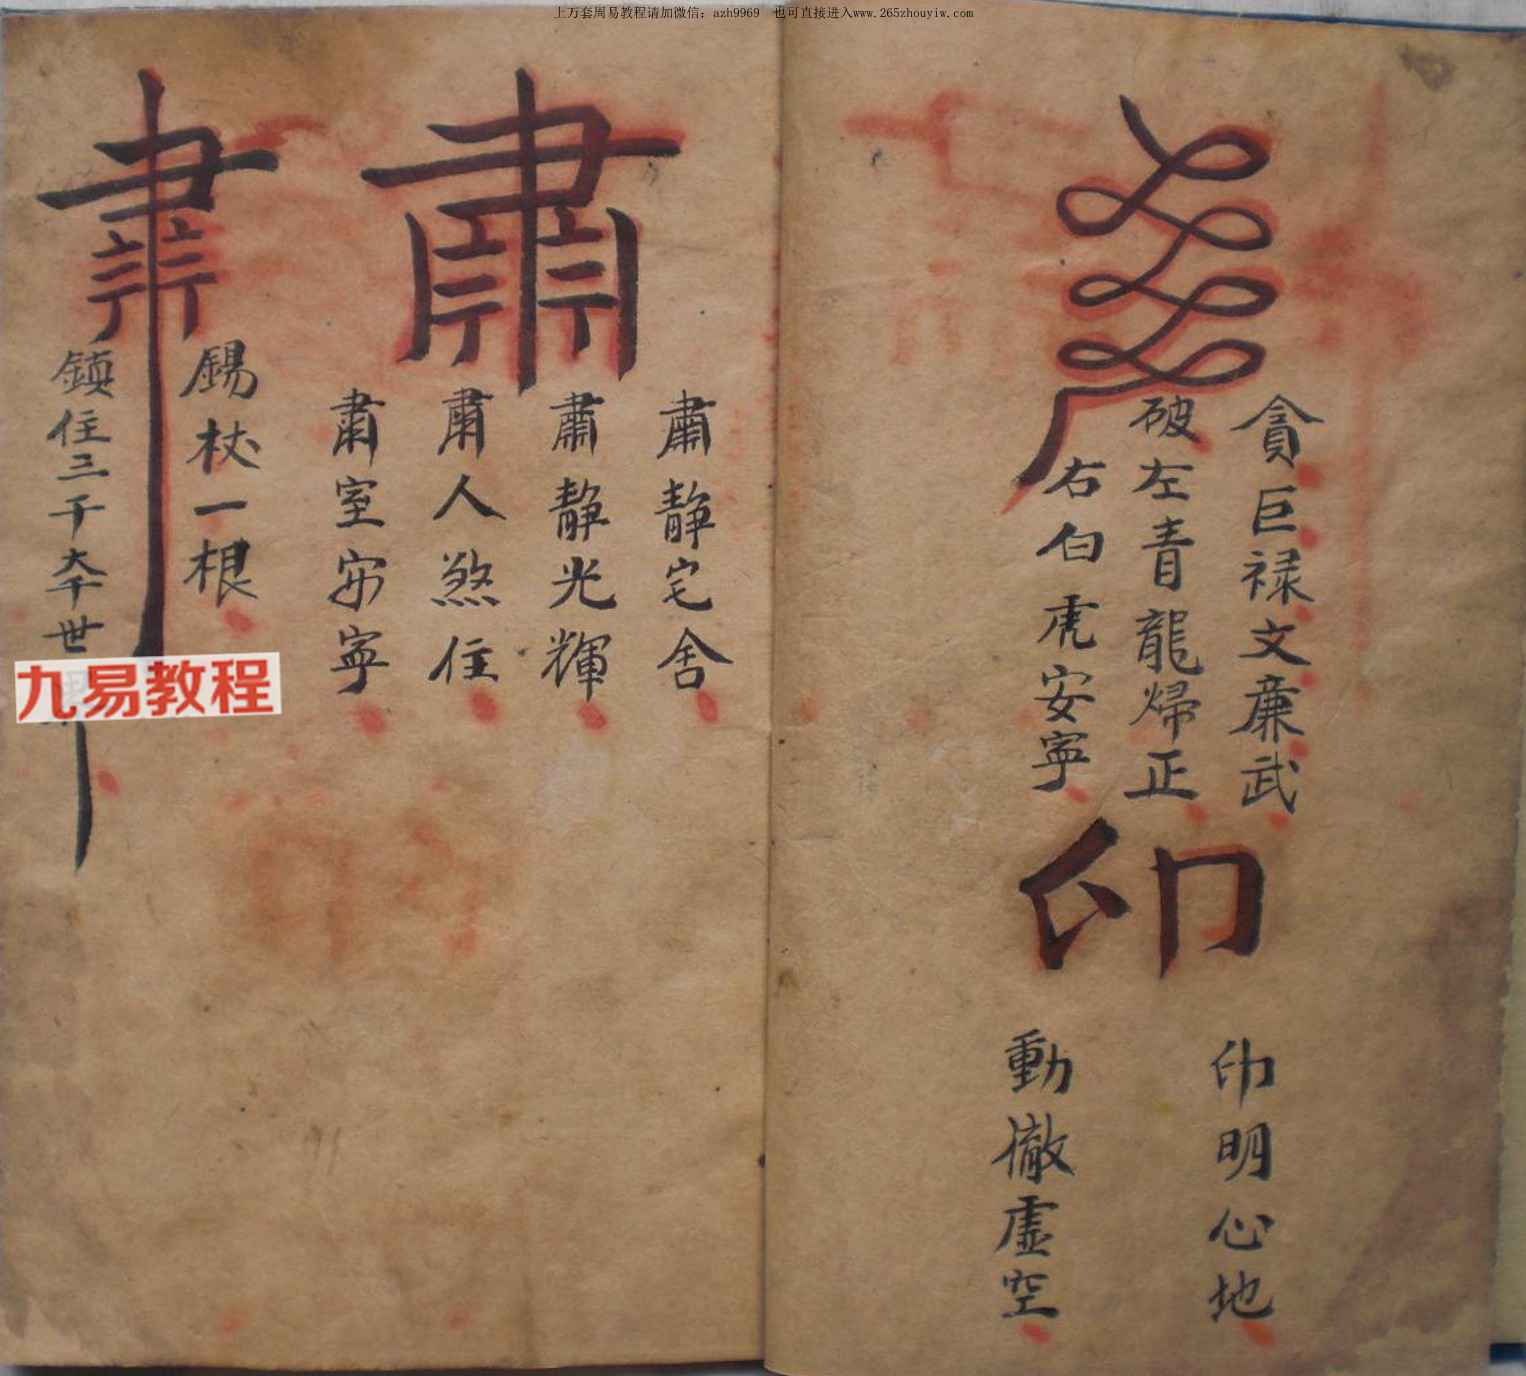 上万套周易教程请加微信：azh9969　也可直接进入www.265zhouyiw.com
貪巨禄文廉武
破左青龍歸正
右白虎安寧
印
印明心地
動徹虛空
肅
肅静宅舍
肅静光輝
肅人煞住
肅室安寧
錫杖一根
鎮住三千大千世
九易教程